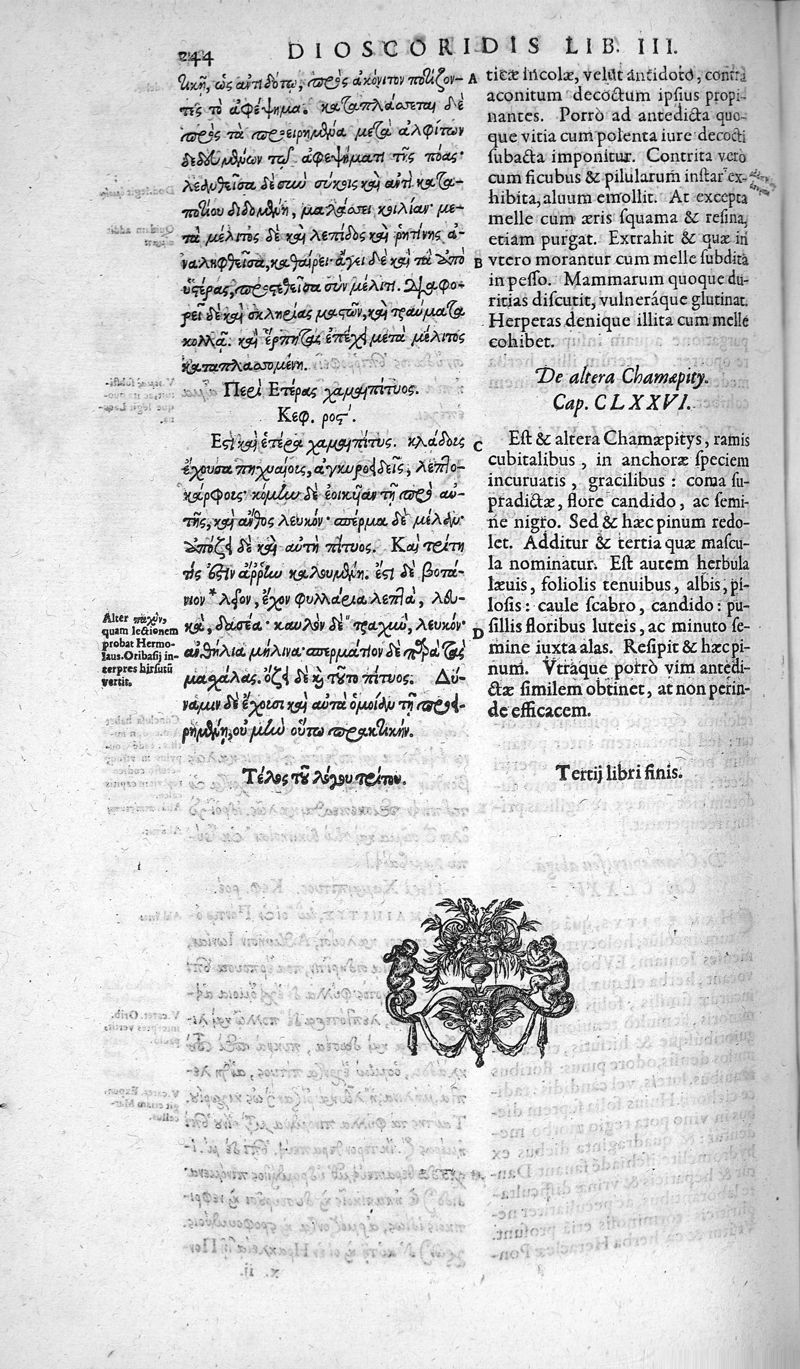 244
DIOSCORIDIS LIB. III.
τικῇ, ὡς ἀντιδότῳ, πρὸς ἀκόνιτον ποτίζον-
τες τὸ ἀφέψημα. καταπλάσσεται δὲ
πρὸς τὰ προειρημένα μετὰ ἀλφίτων
δεδευμένων τῷ ἀφεψήματι τῆς πόας·
λειωθεῖσα δὲ σὺν σύκοις καὶ αὐτὴ κατα-
ποτίου διδομένη, μαλάσσει κοιλίαν· με-
τὰ μέλιτος δὲ καὶ λεπίδος καὶ ῥητίνης ἀ-
ναληφθεῖσα, καθαίρει· ἄγει δὲ καὶ τὰ ἀπὸ
ὑστέρας, προςτεθεῖσα σὺν μέλιτι. Διαφο-
ρεῖ δὲ καὶ σκληρίας μαστῶν, καὶ τραύματα
κολλᾷ. καὶ ἕρπητας ἐπέχει μετὰ μέλιτος
καταπλασσομένη.
Περὶ Ετέρας χαμαιπίτυος.
Κεφ. ρος.
Εστι καὶ ἑτέρα χαμαιπίτυς. κλάδοις
ἔχουσα πηχυαίοις, ἀγκυροειδεῖς, λεπτο-
κάρφοις· κόμην δὲ ἐοικυῖαν τῇ πρὸ αὐ-
τῆς, καὶ ἄνθος λευκόν· σπέρμα δὲ μέλαν·
ὑπόζει δὲ καὶ αὐτὴ πίτυος. Καὶ τρίτη
τίς ἐστιν ἄῤῥην καλουμένη. ἐστὶ δὲ βοτά-
νιον * λεῖον, ἔχον φυλλάρια λεπτὰ, λευ-
κὰ, δασέα· καυλὸν δὲ τραχὺ, λευκόν·
ἀνθήλια μήλινα· σπερμάτιον δὲ παρὰ τὰς
μασχάλας. ὄζει δὲ καὶ τοῦτο πίτυος. Δύ-
ναμιν δὲ ἔχουσι καὶ αὐτὰ ὁμοίαν τῇ προει-
ρημένῃ, οὐ μὴν οὕτω πρακτικήν.
Τέλος τοῦ λόγου τρίτου.
Alter παχὺν,
quam lectionem
probat Hermo-
laus. Oribasij in-
terpres hirsutũ
vertit.
A
B
C
D
ticæ incolæ, velut antidoto, contra
aconitum decoctum ipsius propi-
nantes. Porrò ad antedicta quo-
que vitia cum polenta iure decocti
subacta imponitur. Contrita verò
cum ficubus & pilularum instar ex-
hibita, aluum emollit. At excepta
melle cum æris squama & resina,
etiam purgat. Extrahit & quæ in
vtero morantur cum melle subdita
in pesso. Mammarum quoque du-
ritias discutit, vulneráque glutinat.
Herpetas denique illita cum melle
cohibet.
De altera Chamæpity.
Cap. CLXXVI.
Est & altera Chamæpitys, ramis
cubitalibus, in anchoræ speciem
incuruatis, gracilibus: coma su-
prædictæ, flore candido, ac semi-
ne nigro. Sed & hæc pinum redo-
let. Additur & tertia quæ mascu-
la nominatur. Est autem herbula
læuis, foliolis tenuibus, albis, pi-
losis: caule scabro, candido: pu-
sillis floribus luteis, ac minuto se-
mine iuxta alas. Resipit & hæc pi-
num. Vtraque porrò vim antedi-
ctæ similem obtinet, at non perin-
de efficacem.
Tertij libri finis.